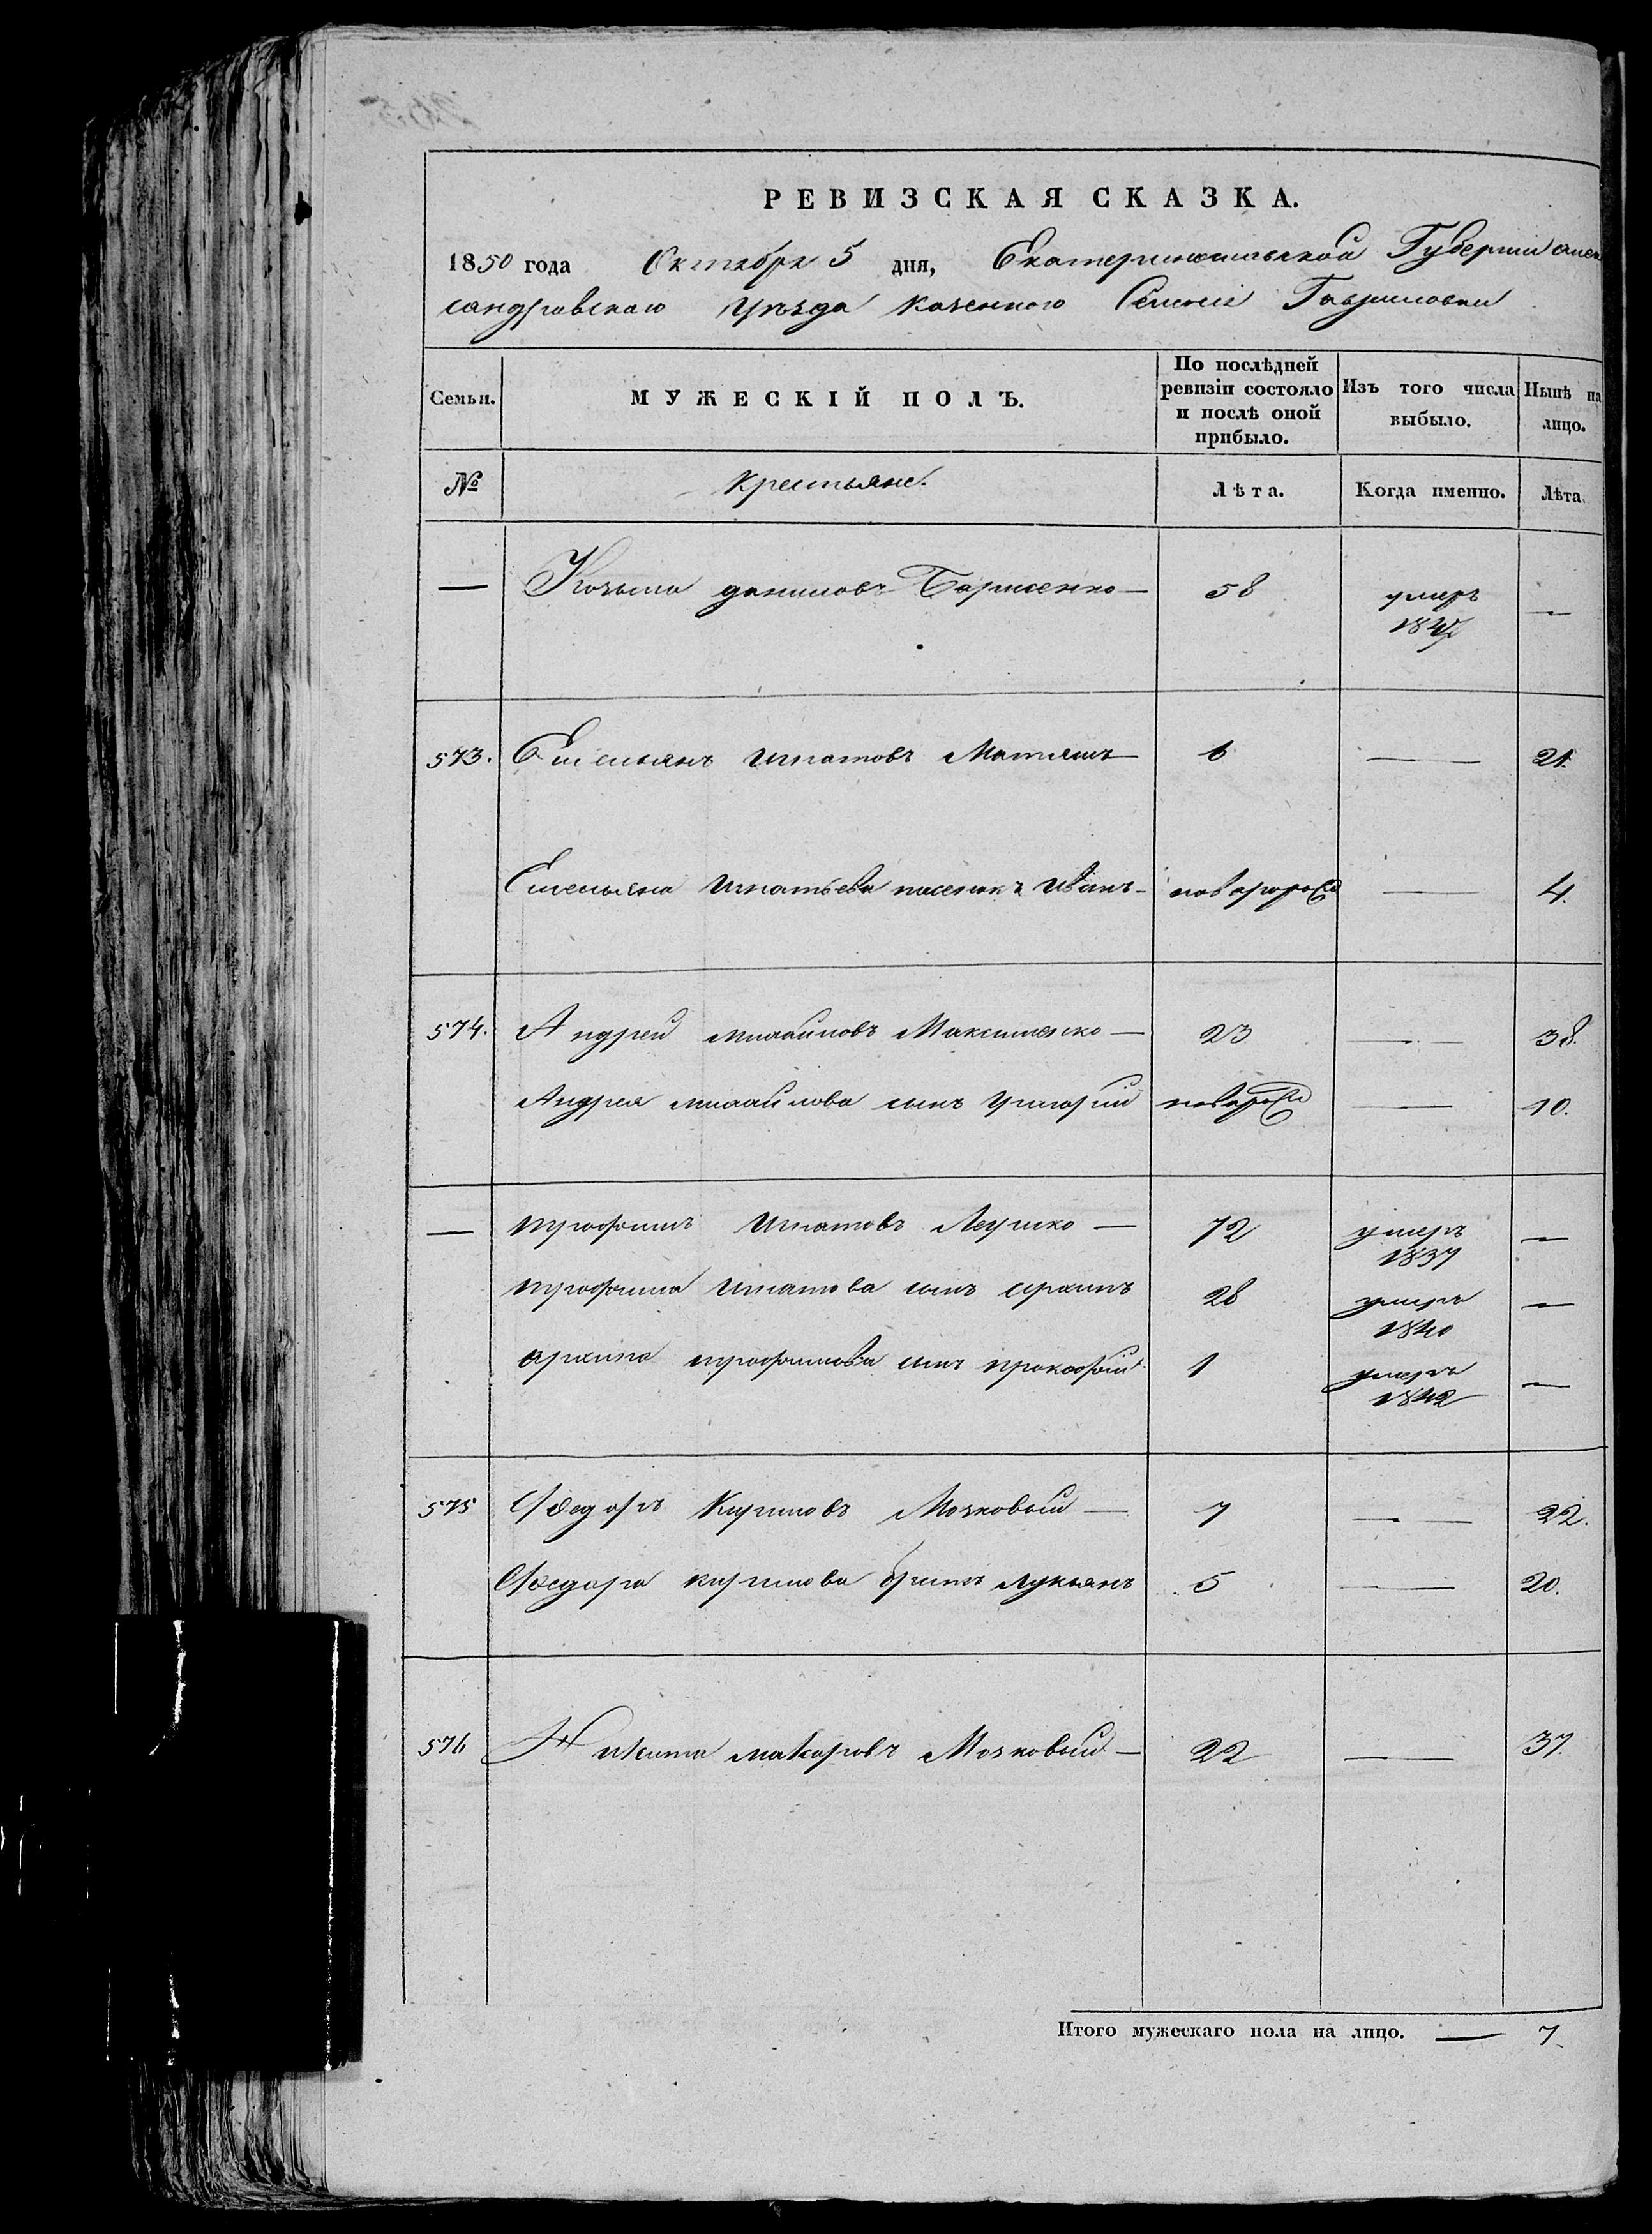 РЕВИЗСКАЯ СКАЗКА.
1850 года Октября 5 дня, Екатеринославской Губернии Алек
сандровскаго уѣзда казенного Селенія Гавриловки
Семьи. МУЖЕСКІЙ ПОЛЪ. По послѣдней ревизіи состояло и послѣ оной прибыло. Изъ того числа выбыло. Нынѣ на лицо.
№ Крестьяне. Лѣта. Когда именно. Лѣта.
— Козьма Данилов Борисенко — 58 умеръ —
184
573. Емельянъ Игнатовъ Матяшъ — 6 — 21.
Емельяна Игнатьева пасенокъ Иванъ — новорожд — 4.
574. Андрей Михайловъ Максименко — 23 — 38.
Андрея Михайлова сынъ Григорій новорожд — 10.
— Трофимъ Игнатовъ — 72 умеръ —
1837
Трофима Игнатова сынъ Архипъ 28 умеръ —
1840
Архипа Трофимова сынъ Прокофій 1 умеръ —
1842
575 Федоръ Кириловъ Мозковый — 7 — 22.
Федора Кирилова братъ Лукьянъ 5 — 20.
576 Никита Макаровъ Мозковый — 22 — 37.
Итого мужескаго пола на лицо. — 7